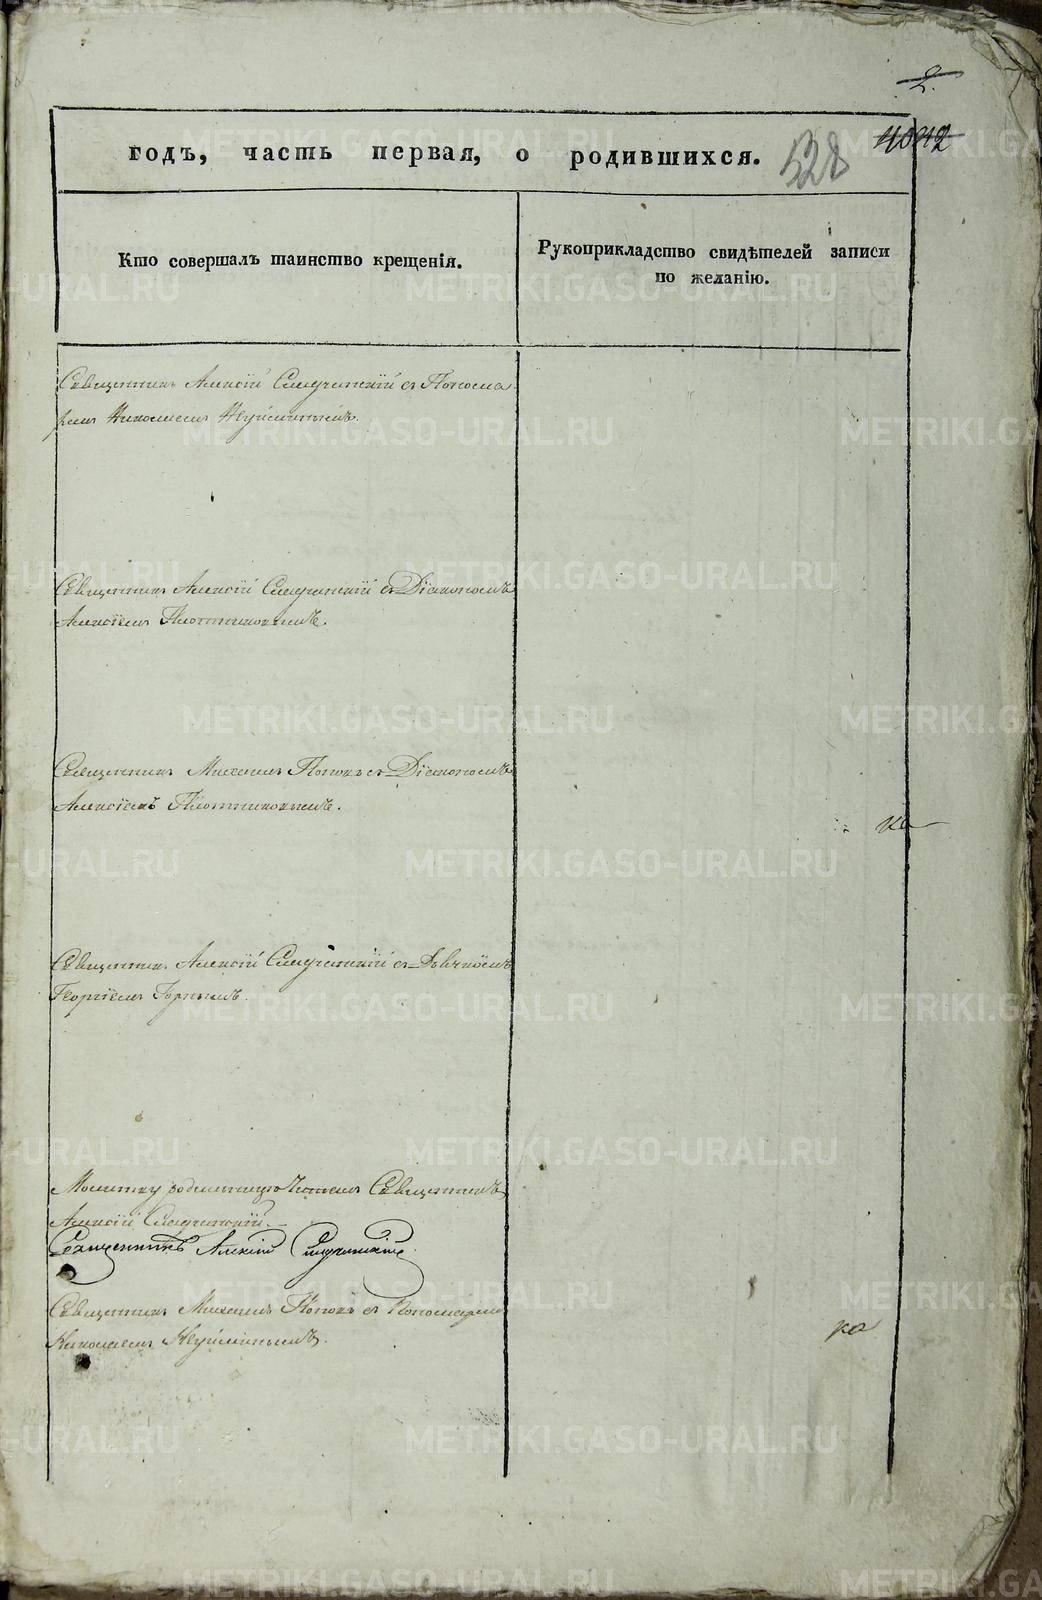 2.
годъ, часть первая, о родившихся.
528
Кто совершалъ таинство крещенія.
Рукоприкладство свидѣтелей записи
по желанію.
Священникъ Алексій Смедчинскій съ Понома
ремъ Николаемъ Неуйминымъ.
Священникъ Алексій съ Діакономъ
Алексіемъ Плотниковымъ.
Священникъ Михаилъ Поповъ съ Діакономъ
Алексіемъ Плотниковымъ.
Священникъ Алексій съ Дьячкомъ
Георгіемъ Горнымъ.
Молитву родильницы читалъ Священникъ
Алексій
Священникъ Алексій
Священникъ Михаилъ Поповъ съ Пономаремъ
Николаемъ Неуйминымъ.
METRIKI.GASO-URAL.RU